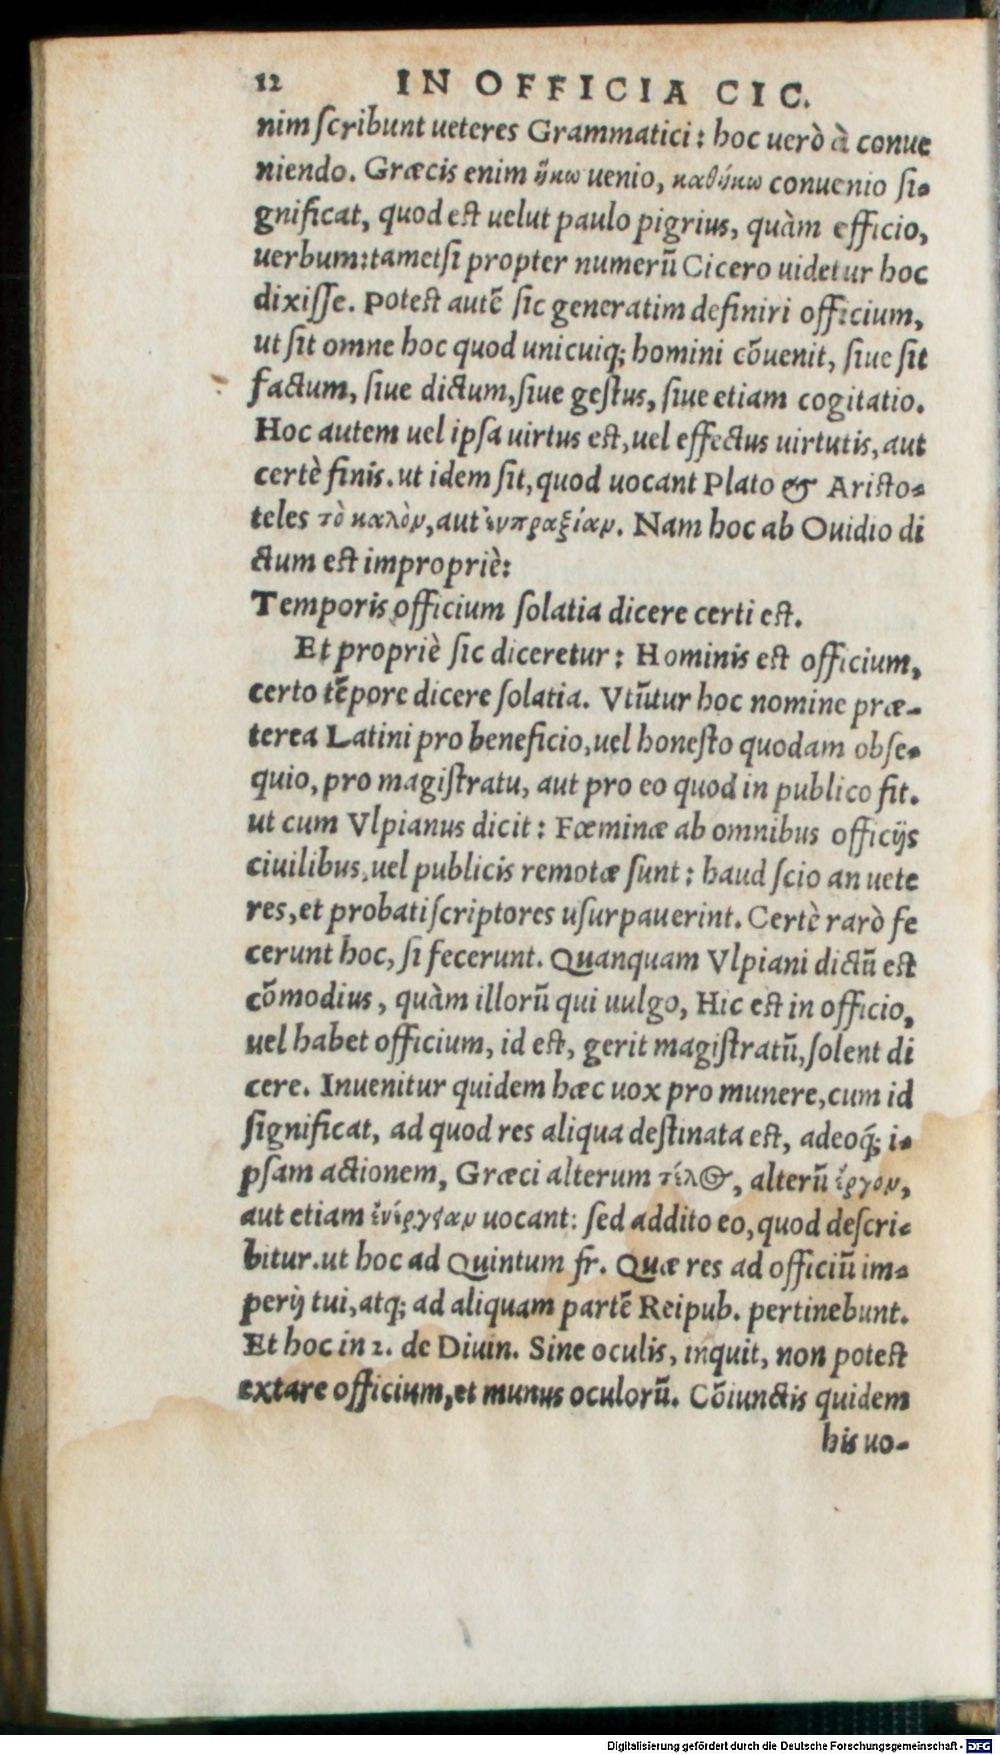 12 IN OFFICIA CIC.
nim ſcribunt ueteres Grammatici: hoc uerò à conue
niendo. Græcis enim ἥκω uenio, καθήκω conuenio ſi-
gnificat, quod eſt uelut paulo pigrius, quàm efficio,
uerbum: tametſi propter numerū Cicero uidetur hoc
dixiſſe. Poteſt autē ſic generatim definiri officium,
ut ſit omne hoc quod unicuiq; homini cōuenit, ſiue ſit
factum, ſiue dictum, ſiue geſtus, ſiue etiam cogitatio.
Hoc autem uel ipſa uirtus eſt, uel effectus uirtutis, aut
certè finis. ut idem ſit, quod uocant Plato & Ariſto-
teles τὸ καλὸν, aut ἐυπραξίαν. Nam hoc ab Ouidio di
ctum eſt impropriè:
Temporis officium ſolatia dicere certi eſt.
Et propriè ſic diceretur: Hominis eſt officium,
certo tēpore dicere ſolatia. Vtūtur hoc nomine præ-
terea Latini pro beneficio, uel honeſto quodam obſe-
quio, pro magiſtratu, aut pro eo quod in publico fit.
ut cum Vlpianus dicit: Fœminæ ab omnibus officijs
ciuilibus, uel publicis remotæ ſunt: haud ſcio an uete
res, et probati ſcriptores uſurpauerint. Certè rarò fe
cerunt hoc, ſi fecerunt. Quanquam Vlpiani dictū eſt
cōmodius, quàm illorū qui uulgo, Hic eſt in officio,
uel habet officium, id eſt, gerit magiſtratū, ſolent di
cere. Inuenitur quidem hæc uox pro munere, cum id
ſignificat, ad quod res aliqua deſtinata eſt, adeoq́; i-
pſam actionem, Græci alterum τέλος, alterū ἔργον,
aut etiam ἐνέργειαν uocant: ſed addito eo, quod deſcri-
bitur. ut hoc ad Quintum fr. Quæ res ad officiū im-
perij tui, atq; ad aliquam partē Reipub. pertinebunt.
Et hoc in 2. de Diuin. Sine oculis, inquit, non poteſt
extare officium, et munus oculorū. Cōiunctis quidem
his uo-
Digitalisierung gefördert durch die Deutsche Forschungsgemeinschaft - DFG